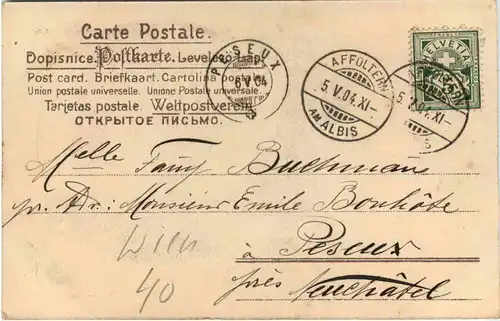 Carte Postale.
Dopisnice. Postkarte. Levelező-Lap.
Post card. Briefkaart. Cartolina postale.
Union postale universelle. Unione Postale universale.
Tarjetas postale. Weltpostverein.
ОТКРЫТОЕ ПИСЬМО.
PESEUX
6 V 04
AFFOLTERN
5. V. 04. XI–
AM ALBIS
5. V. 04. XI–
HELVETIA
Melle Fany Buchmann
pr. Adr: Monsieur Emile Bonhôte
à Peseux
près Neuchâtel
Wien
40